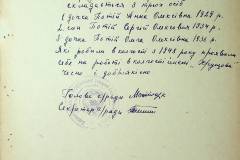 складається з трьох осіб
1 дочка Потій Анна Олексіївна 1929 р.
2. син Потій Сергій Олексійович 1934 р.
3 дочка Потій Ольга Олексіївна 1938 р.
Які робили в колгоспі з 1948 року проявили
себе на роботі в колгоспі імені Хрущова
чесно і добросовісно
Голова с/ради
Секретар с/ради